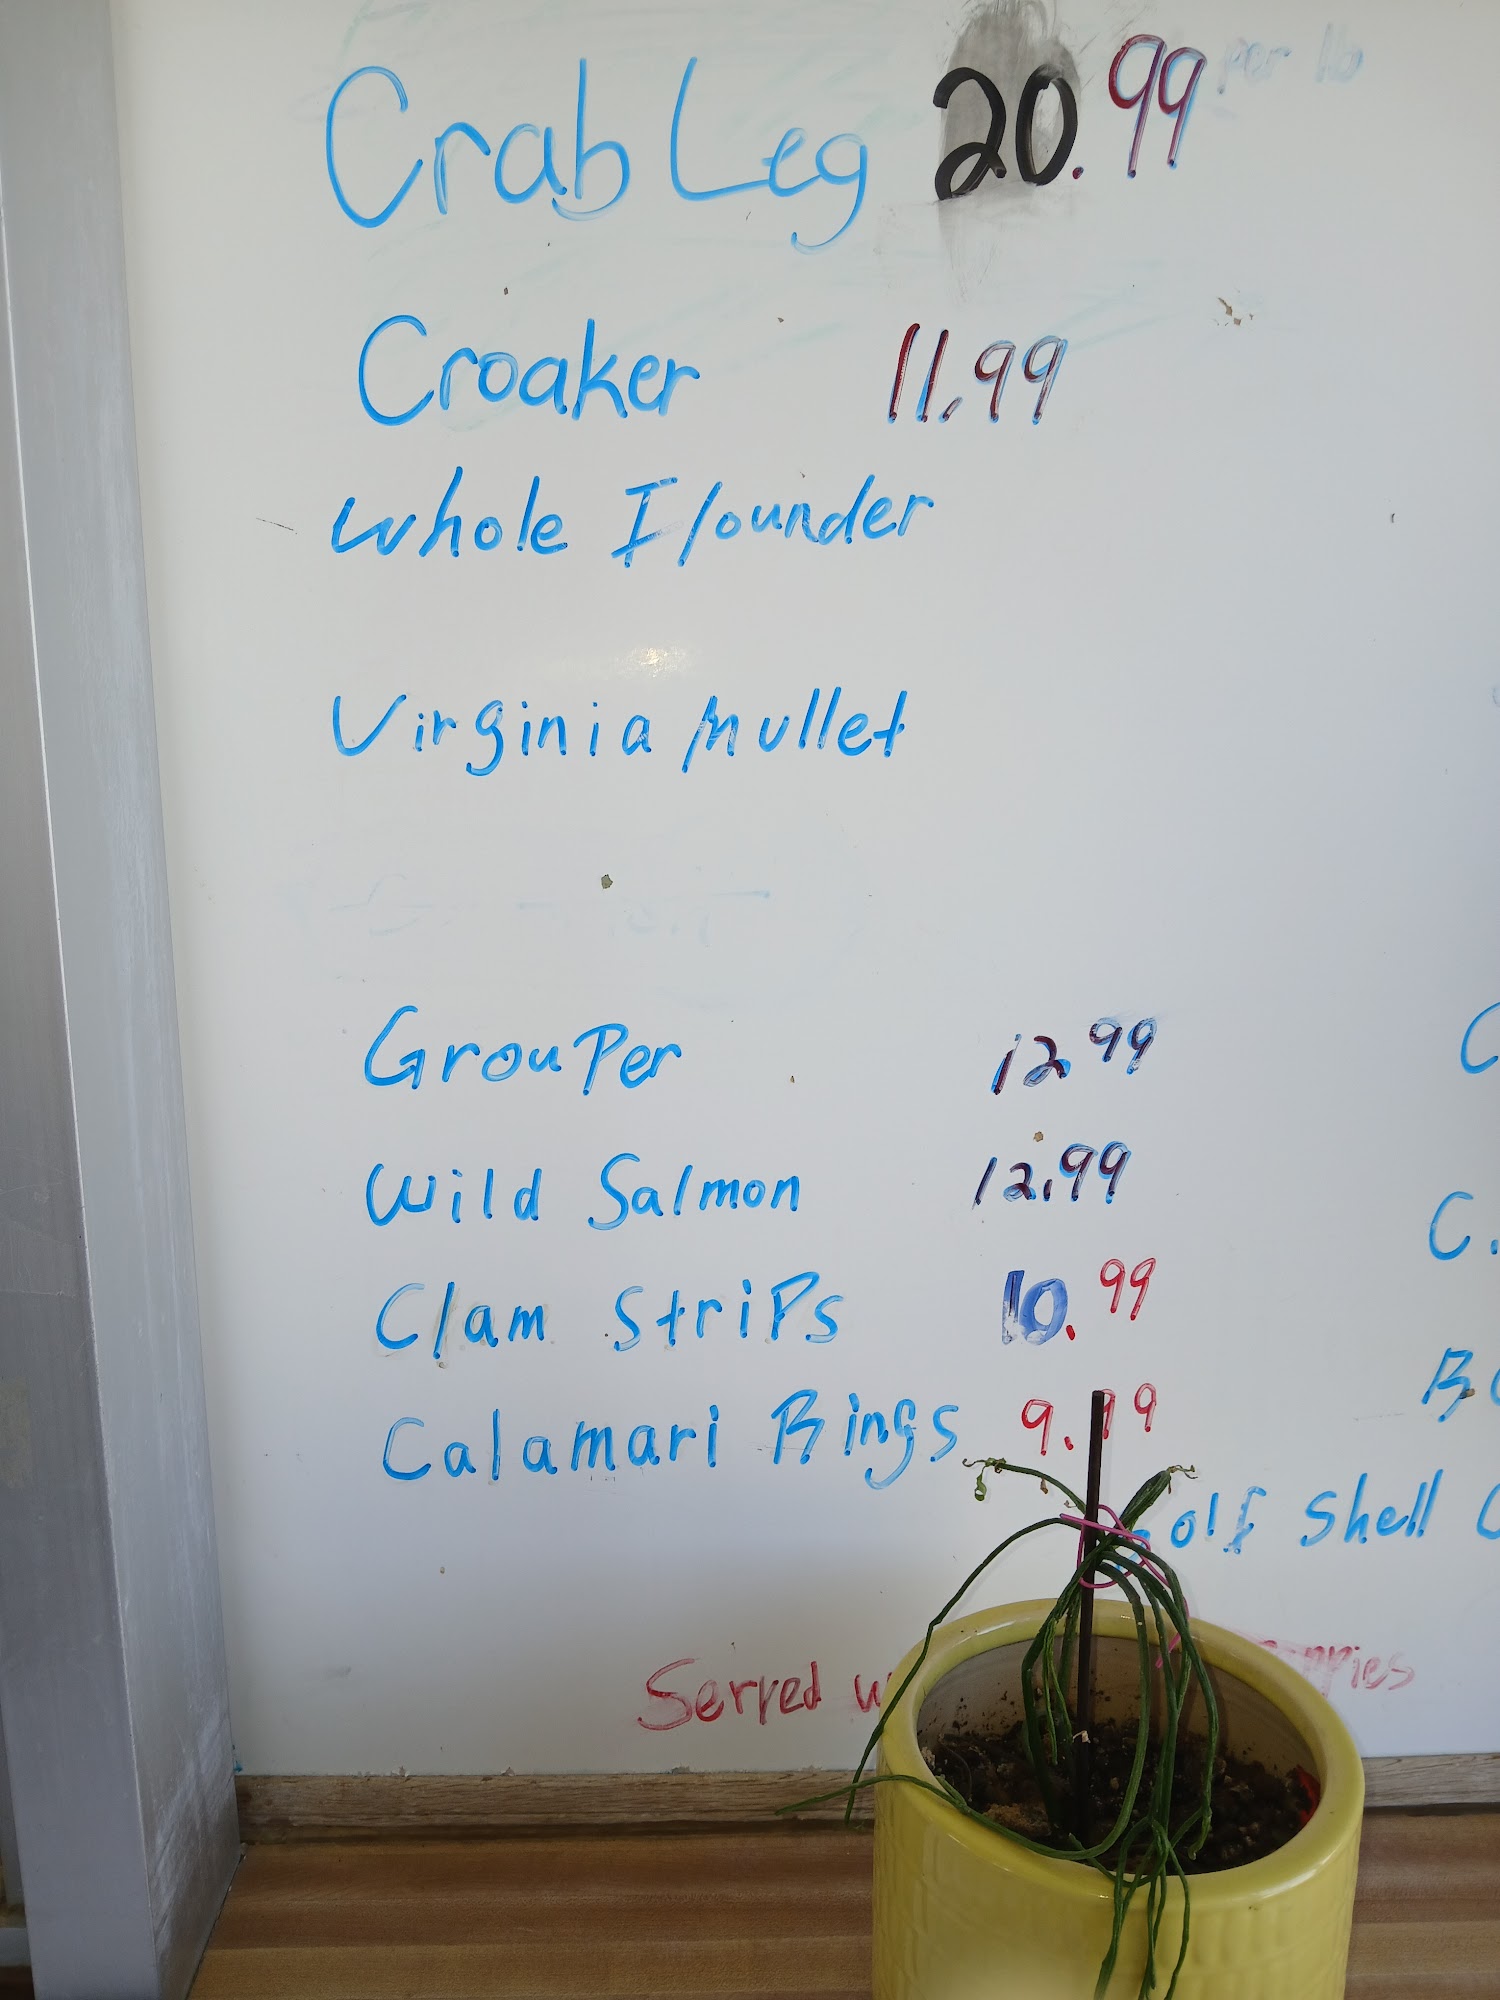 Crab Leg 20.99 per lb
Croaker 11.99
Whole Flounder
Virginia Mullet
GrouPer 12 99
Wild Salmon 12.99
Clam StriPs 10.99
Calamari Rings 9.99
Shell
Served